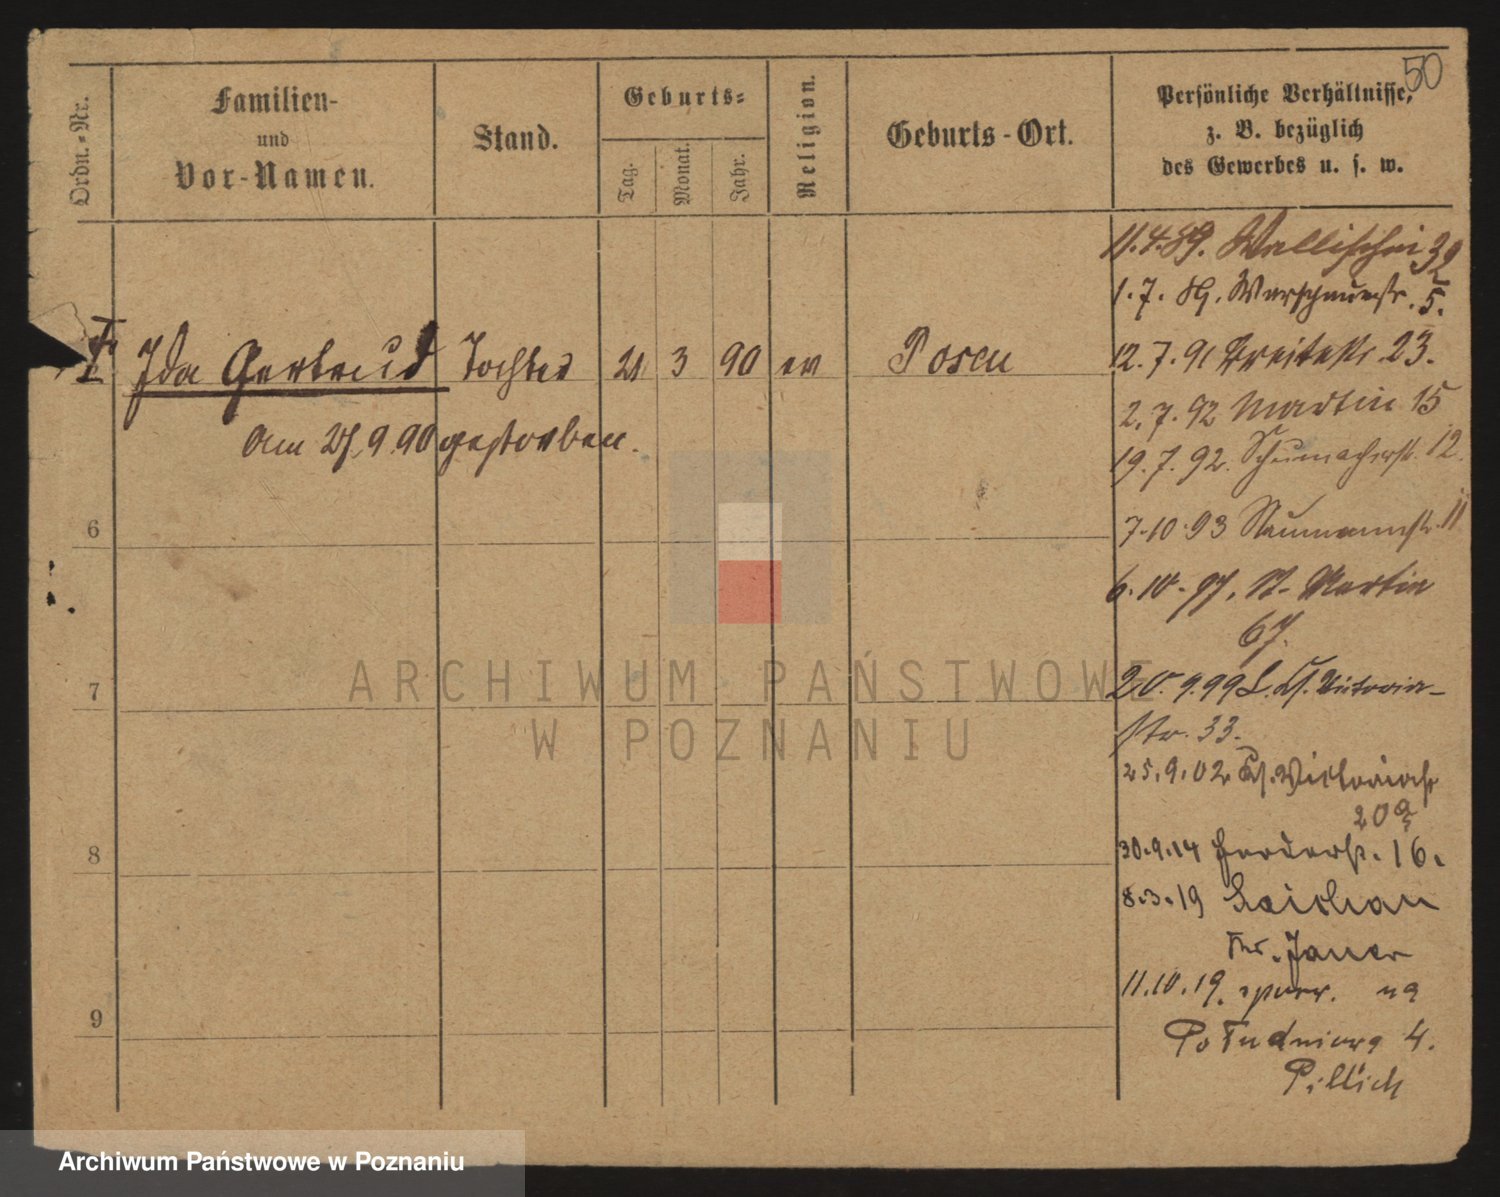 50
Ordn.-Nr.
Familien-
und
Vor-Namen.
Stand.
Geburts-
Tag.
Monat.
Jahr.
Religion.
Geburts-Ort.
Persönliche Verhältnisse,
z. B. bezüglich
des Gewerbes u. s. w.
11.4.89. Wallischei 32
1.7.89. Warschauerstr. 5.
Ida Gertrud Tochter 21 3 90 ev Posen
12.7.91 Breitestr. 23.
am 25.9.90 gestorben.
2.7.92 Martin 15
19.7.92. Schumacherstr. 12.
6
7.10.93 Naumannstr. 11
6.10.97. St. Martin
67.
7
20.9.99 Victoria-
str. 33.
25.9.02 Victoriastr
20
8
30.9.14 Herderstr. 16.
8.3.19
Jauer
11.10.19. na
9
Południowa 4.
Pillich
ARCHIWUM PAŃSTWOWE
W POZNANIU
Archiwum Państwowe w Poznaniu